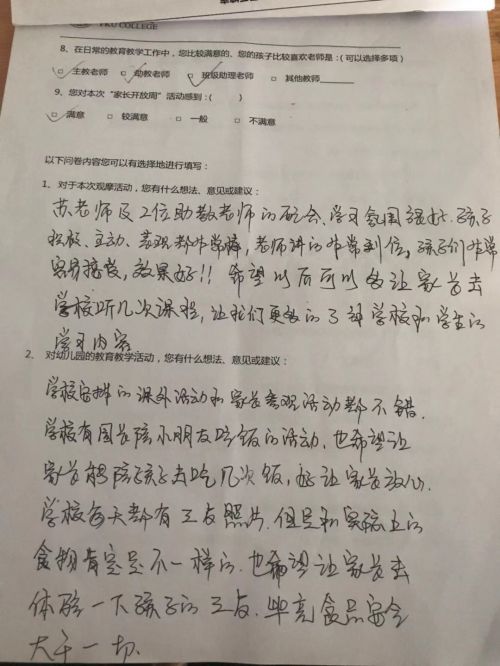 PKU COLLEGE
8、在日常的教育教学工作中，您比较满意的、您的孩子比较喜欢老师是：（可以选择多项）
□ 主教老师 □ 助教老师 □ 班级助理老师 □ 其他教师
9、您对本次“家长开放周”活动感到：（ ）
□ 满意 □ 较满意 □ 一般 □ 不满意
以下问卷内容您可以有选择地进行填写：
1、对于本次观摩活动，您有什么想法、意见或建议：
苏老师及2位助教老师的配合、学习氛围很好.孩子
积极、主动、表现都非常棒，老师讲的非常到位，孩子们非常
容易接受，效果好!! 希望以后可以多让家长去
学校听几次课程，让我们更多的了解学校和学生的
学习内容
2、对幼儿园的教育教学活动，您有什么想法、意见或建议：
学校安排的课外活动和家长参观活动都不错.
学校有园长陪小朋友吃饭的活动.也希望让
家长能陪孩子去吃几次饭，好让家长放心.
学校每天都有三友照片.但是和实际上的
食物肯定是不一样的.也希望让家长去
体验一下孩子的三友.毕竟食品安全
大于一切.